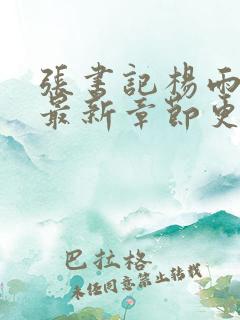 張書記楊雨
最新章節更
巴拉格
未經同意禁止轉載